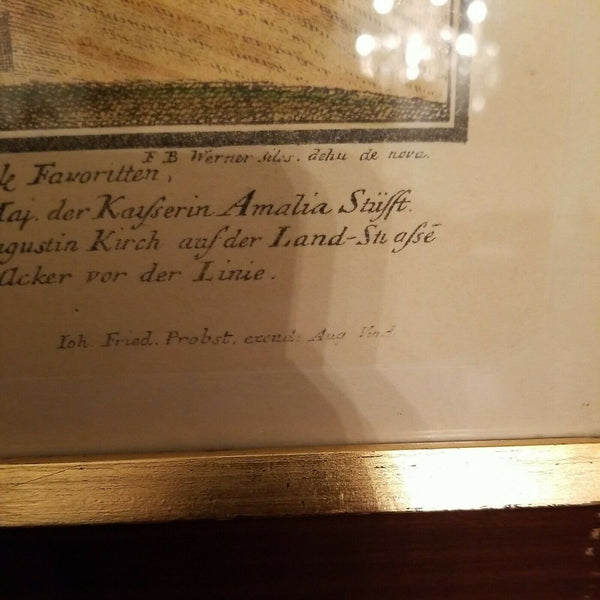 F B Werner siles. delin de novo.
Favoritten,
Maj. der Kayserin Amalia Stüfft.
Augustin Kirch auf der Land-Strassē
Acker vor der Linie.
Ioh. Fried. Probst. excud. Aug Vind.